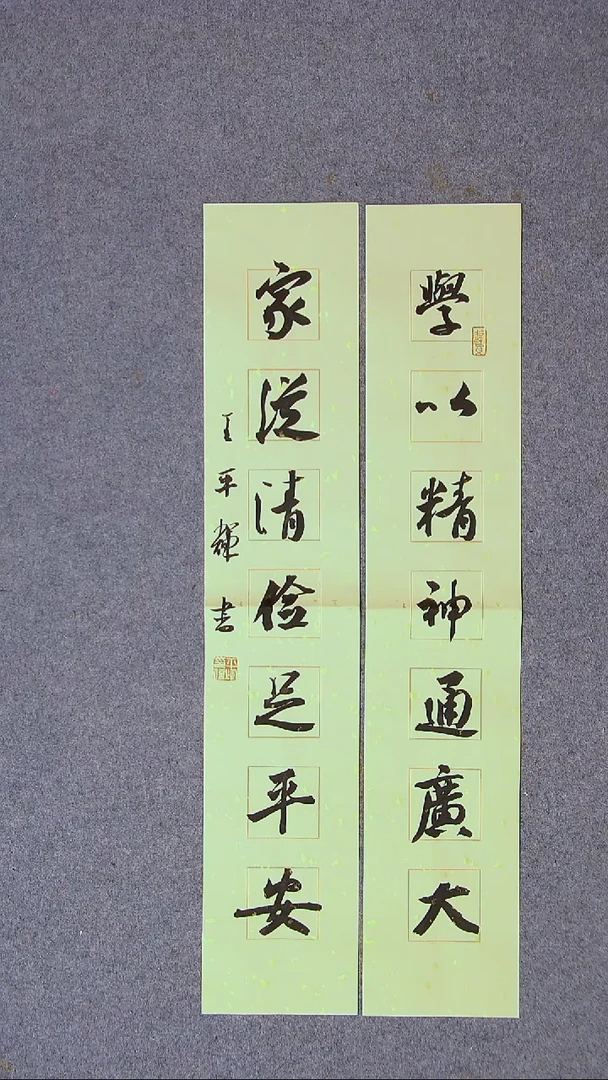 學以精神通廣大
家從清俭足平安
王平輝书